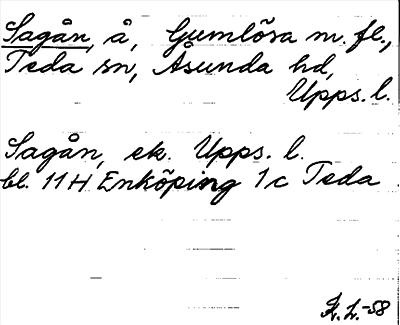 Sagån, å, Gumlösa m. fl.,
Teda sn, Åsunda hd,
Upps. l.
Sagån, ek. Upps. l.
bl. 11H Enköping 1c Teda
K. L. -58